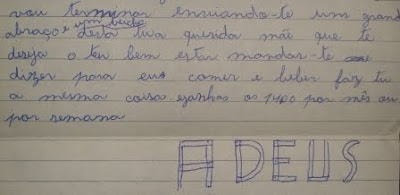 vou terminar enviando-te um grand
abraço e um beijo desta tua querida mãe que te
deseja o teu bem estar mandas-te
dizer para eu comer e beber faz tu
a mesma coisa ganhas os 1400 por mês ou
por semana
ADEUS